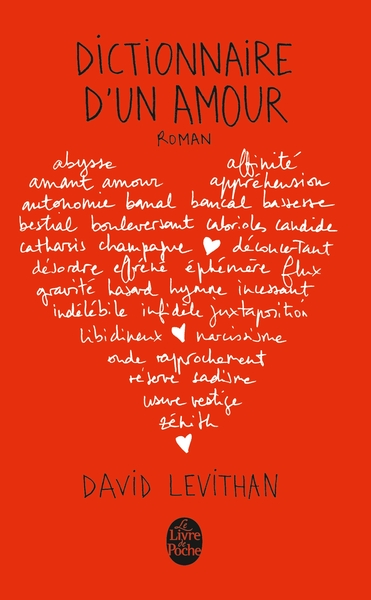 DICTIONNAIRE
D'UN AMOUR
ROMAN
abysse affinité
amant amour appréhension
autonomie banal bancal basse
bestial bouleversant cabrioles candide
catharsis champagne déconcertant
désordre effréné éphémère flux
gravité hasard hymne incessant
indélébile infidèle juxtaposition
libidineux narcissisme
onde rapprochement
réserve sadisme
usure vestige
zénith
DAVID LEVITHAN
Le
Livre
de
Poche